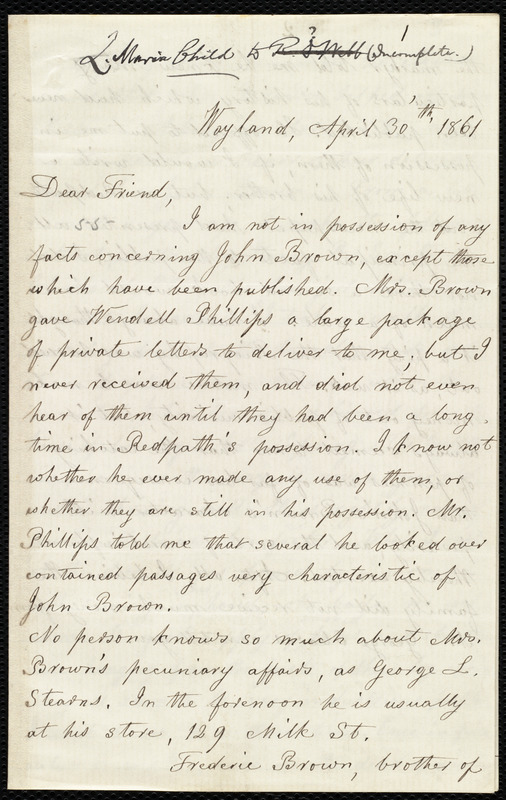 L. Maria Child to R. D. Webb (Incomplete.)
1
?
Wayland, April 30'th, 1861
Dear Friend,
I am not in possession of any
facts concerning John Brown, except those
which have been published. Mrs. Brown
gave Wendell Phillips a large package
of private letters to deliver to me; but I
never received them, and did not even
hear of them until they had been a long
time in Redpath's possession. I know not
whether he ever made any use of them, or
whether they are still in his possession. Mr.
Phillips told me that several he looked over
contained passages very characteristic of
John Brown.
No person knows so much about Mrs.
Brown's pecuniary affairs, as George L.
Stearns. In the forenoon he is usually
at his store, 129 Milk St.
Frederic Brown, brother of